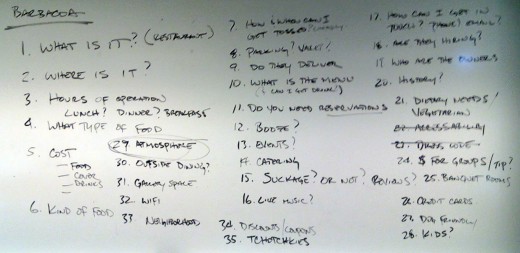 BARBACOA
1. WHAT IS IT? (RESTAURANT)
2. WHERE IS IT?
3. HOURS OF OPERATION
LUNCH? DINNER? BREAKFAST
4. WHAT TYPE OF FOOD
5. COST
— FOOD
— COVER
— DRINKS
6. KIND OF FOOD
29. ATMOSPHERE
30. OUTSIDE DINING?
31. GALLERY SPACE
32. WIFI
33 NEIGHBORHOOD
7. HOW & WHEN CAN I
GET
8. PARKING? VALET?
9. DO THEY DELIVER
10. WHAT IS THE MENU
(CAN I GET
11. DO YOU NEED RESERVATIONS
12. BOOZE?
13. EVENTS?
14 CATERING
15. SUCKAGE? OR NOT? REVIEWS?
16. LIVE MUSIC?
34. DISCOUNTS/COUPONS
35. TCHOTCHKIES
17. HOW CAN I GET IN
TOUCH? PHONE? EMAIL?
18. ARE THEY HIRING?
19. WHO ARE THE OWNERS
20. HISTORY?
21. DIETARY NEEDS/
VEGETARIAN
22. ACCESSABILITY
23. DRESS CODE
24. $ FOR GROUPS/TIP?
25. BANQUET ROOMS
26. CREDIT CARDS
27. DOG FRIENDLY
28. KIDS?